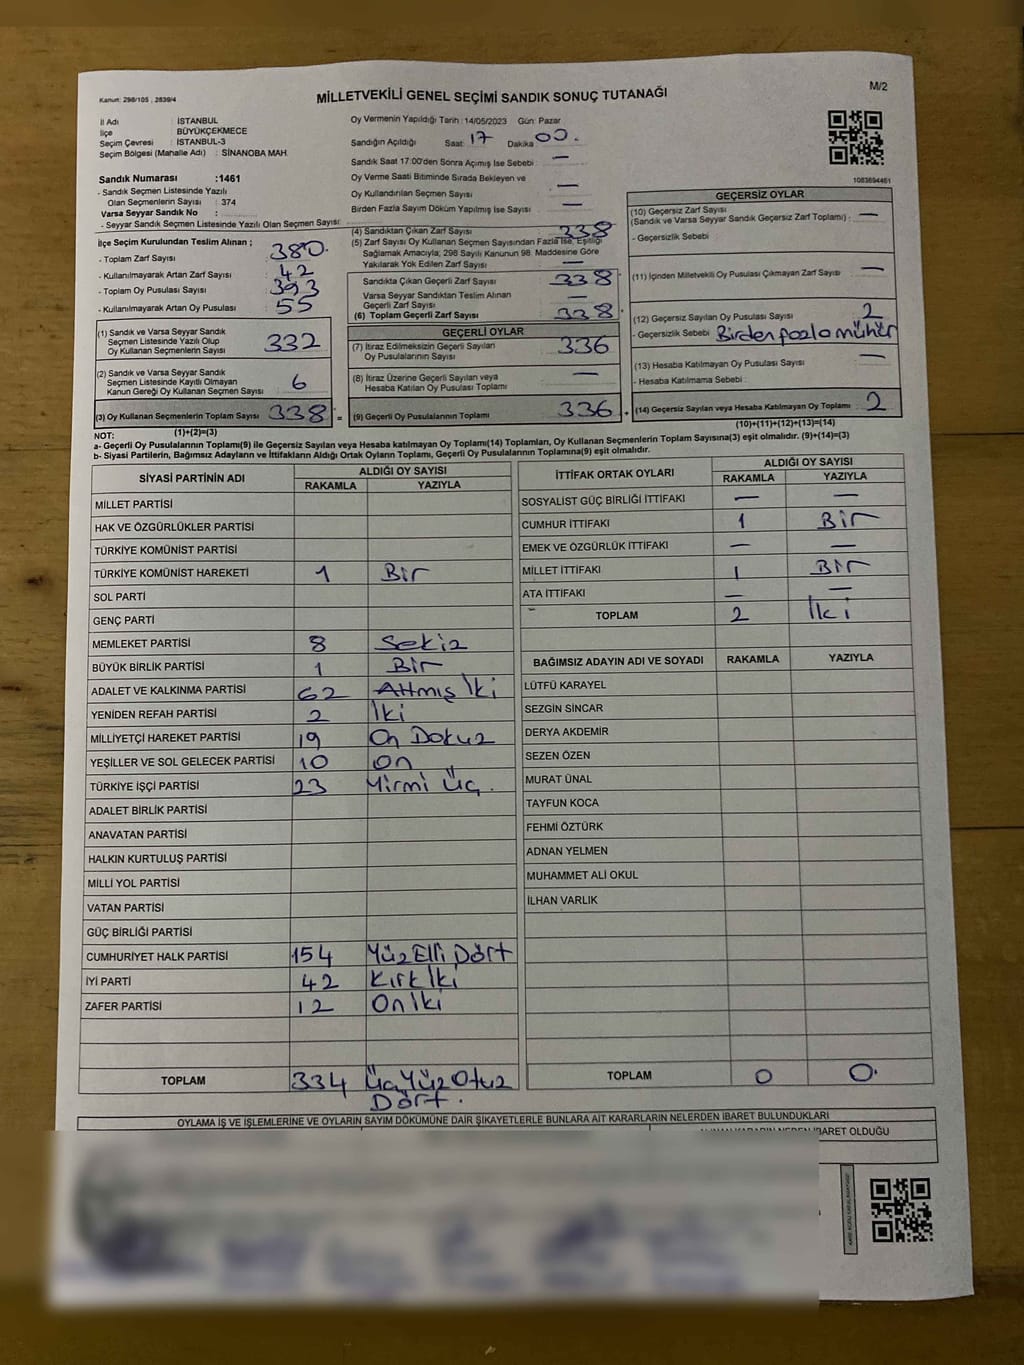 Kanun: 298/105 , 2839/4
MİLLETVEKİLİ GENEL SEÇİMİ SANDIK SONUÇ TUTANAĞI
M/2
İl Adı : İSTANBUL
İlçe BÜYÜKÇEKMECE
Seçim Çevresi : İSTANBUL-3
Seçim Bölgesi (Mahalle Adı) : SİNANOBA MAH.
Sandık Numarası :1461
- Sandık Seçmen Listesinde Yazılı
Olan Seçmenlerin Sayısı : 374
Varsa Seyyar Sandık No :
- Seyyar Sandık Seçmen Listesinde Yazılı Olan Seçmen Sayısı:
Oy Vermenin Yapıldığı Tarih :14/05/2023 Gün: Pazar
Sandığın Açıldığı Saat: 17 Dakika 00.
Sandık Saat 17:00'den Sonra Açımış İse Sebebi : —
Oy Verme Saati Bitiminde Sırada Bekleyen ve
Oy Kullandırılan Seçmen Sayısı : —
Birden Fazla Sayım Döküm Yapılmış İse Sayısı : —
1083694461
İlçe Seçim Kurulundan Teslim Alınan ;
- Toplam Zarf Sayısı : 380.
- Kullanılmayarak Artan Zarf Sayısı : 42
- Toplam Oy Pusulası Sayısı : 393
- Kullanılmayarak Artan Oy Pusulası : 55
(1) Sandık ve Varsa Seyyar Sandık
Seçmen Listesinde Yazılı Olup
Oy Kullanan Seçmenlerin Sayısı 332
(2) Sandık ve Varsa Seyyar Sandık
Seçmen Listesinde Kayıtlı Olmayan
Kanun Gereği Oy Kullanan Seçmen Sayısı 6
(3) Oy Kullanan Seçmenlerin Toplam Sayısı 338 =
(1)+(2)=(3)
(4) Sandıktan Çıkan Zarf Sayısı : 338
(5) Zarf Sayısı Oy Kullanan Seçmen Sayısından Fazla İse, Eşitliği
Sağlamak Amacıyla, 298 Sayılı Kanunun 98. Maddesine Göre
Yakılarak Yok Edilen Zarf Sayısı : —
Sandıkta Çıkan Geçerli Zarf Sayısı : 338
Varsa Seyyar Sandıktan Teslim Alınan
Geçerli Zarf Sayısı : —
(6) Toplam Geçerli Zarf Sayısı : 338
GEÇERLİ OYLAR
(7) İtiraz Edilmeksizin Geçerli Sayılan
Oy Pusulalarının Sayısı : 336
(8) İtiraz Üzerine Geçerli Sayılan veya
Hesaba Katılan Oy Pusulası Toplamı : —
(9) Geçerli Oy Pusulalarının Toplamı 336 +
GEÇERSİZ OYLAR
(10) Geçersiz Zarf Sayısı
(Sandık ve Varsa Seyyar Sandık Geçersiz Zarf Toplamı) : —
- Geçersizlik Sebebi :
(11) İçinden Milletvekili Oy Pusulası Çıkmayan Zarf Sayısı : —
(12) Geçersiz Sayılan Oy Pusulası Sayısı : 2
- Geçersizlik Sebebi Birden fazla mühür
(13) Hesaba Katılmayan Oy Pusulası Sayısı : —
- Hesaba Katılmama Sebebi :
(14) Geçersiz Sayılan veya Hesaba Katılmayan Oy Toplamı 2
(10)+(11)+(12)+(13)=(14)
NOT:
a- Geçerli Oy Pusulalarının Toplamı(9) ile Geçersiz Sayılan veya Hesaba katılmayan Oy Toplamı(14) Toplamları, Oy Kullanan Seçmenlerin Toplam Sayısına(3) eşit olmalıdır. (9)+(14)=(3)
b- Siyasi Partilerin, Bağımsız Adayların ve İttifakların Aldığı Ortak Oyların Toplamı, Geçerli Oy Pusulalarının Toplamına(9) eşit olmalıdır.
SİYASİ PARTİNİN ADI ALDIĞI OY SAYISI
RAKAMLA YAZIYLA
MİLLET PARTİSİ
HAK VE ÖZGÜRLÜKLER PARTİSİ
TÜRKİYE KOMÜNİST PARTİSİ
TÜRKİYE KOMÜNİST HAREKETİ 1 Bir
SOL PARTİ
GENÇ PARTİ
MEMLEKET PARTİSİ 8 Sekiz
BÜYÜK BİRLİK PARTİSİ 1 Bir
ADALET VE KALKINMA PARTİSİ 62 Altmış İki
YENİDEN REFAH PARTİSİ 2 İki
MİLLİYETÇİ HAREKET PARTİSİ 19 On Dokuz
YEŞİLLER VE SOL GELECEK PARTİSİ 10 On
TÜRKİYE İŞÇİ PARTİSİ 23 Yirmi Üç.
ADALET BİRLİK PARTİSİ
ANAVATAN PARTİSİ
HALKIN KURTULUŞ PARTİSİ
MİLLİ YOL PARTİSİ
VATAN PARTİSİ
GÜÇ BİRLİĞİ PARTİSİ
CUMHURİYET HALK PARTİSİ 154 Yüz Elli Dört
İYİ PARTİ 42 Kırk İki
ZAFER PARTİSİ 12 On İki
TOPLAM 334 Üç Yüz Otuz
Dört.
İTTİFAK ORTAK OYLARI ALDIĞI OY SAYISI
RAKAMLA YAZIYLA
SOSYALİST GÜÇ BİRLİĞİ İTTİFAKI — —
CUMHUR İTTİFAKI 1 Bir
EMEK VE ÖZGÜRLÜK İTTİFAKI — —
MİLLET İTTİFAKI 1 Bir
ATA İTTİFAKI — —
TOPLAM 2 İki
BAĞIMSIZ ADAYIN ADI VE SOYADI RAKAMLA YAZIYLA
LÜTFÜ KARAYEL
SEZGİN SİNCAR
DERYA AKDEMİR
SEZEN ÖZEN
MURAT ÜNAL
TAYFUN KOCA
FEHMİ ÖZTÜRK
ADNAN YELMEN
MUHAMMET ALİ OKUL
İLHAN VARLIK
TOPLAM 0 0.
OYLAMA İŞ VE İŞLEMLERİNE VE OYLARIN SAYIM DÖKÜMÜNE DAİR ŞİKAYETLERLE BUNLARA AİT KARARLARIN NELERDEN İBARET BULUNDUKLARI
İBARET OLDUĞU